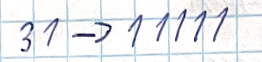 31 → 11111